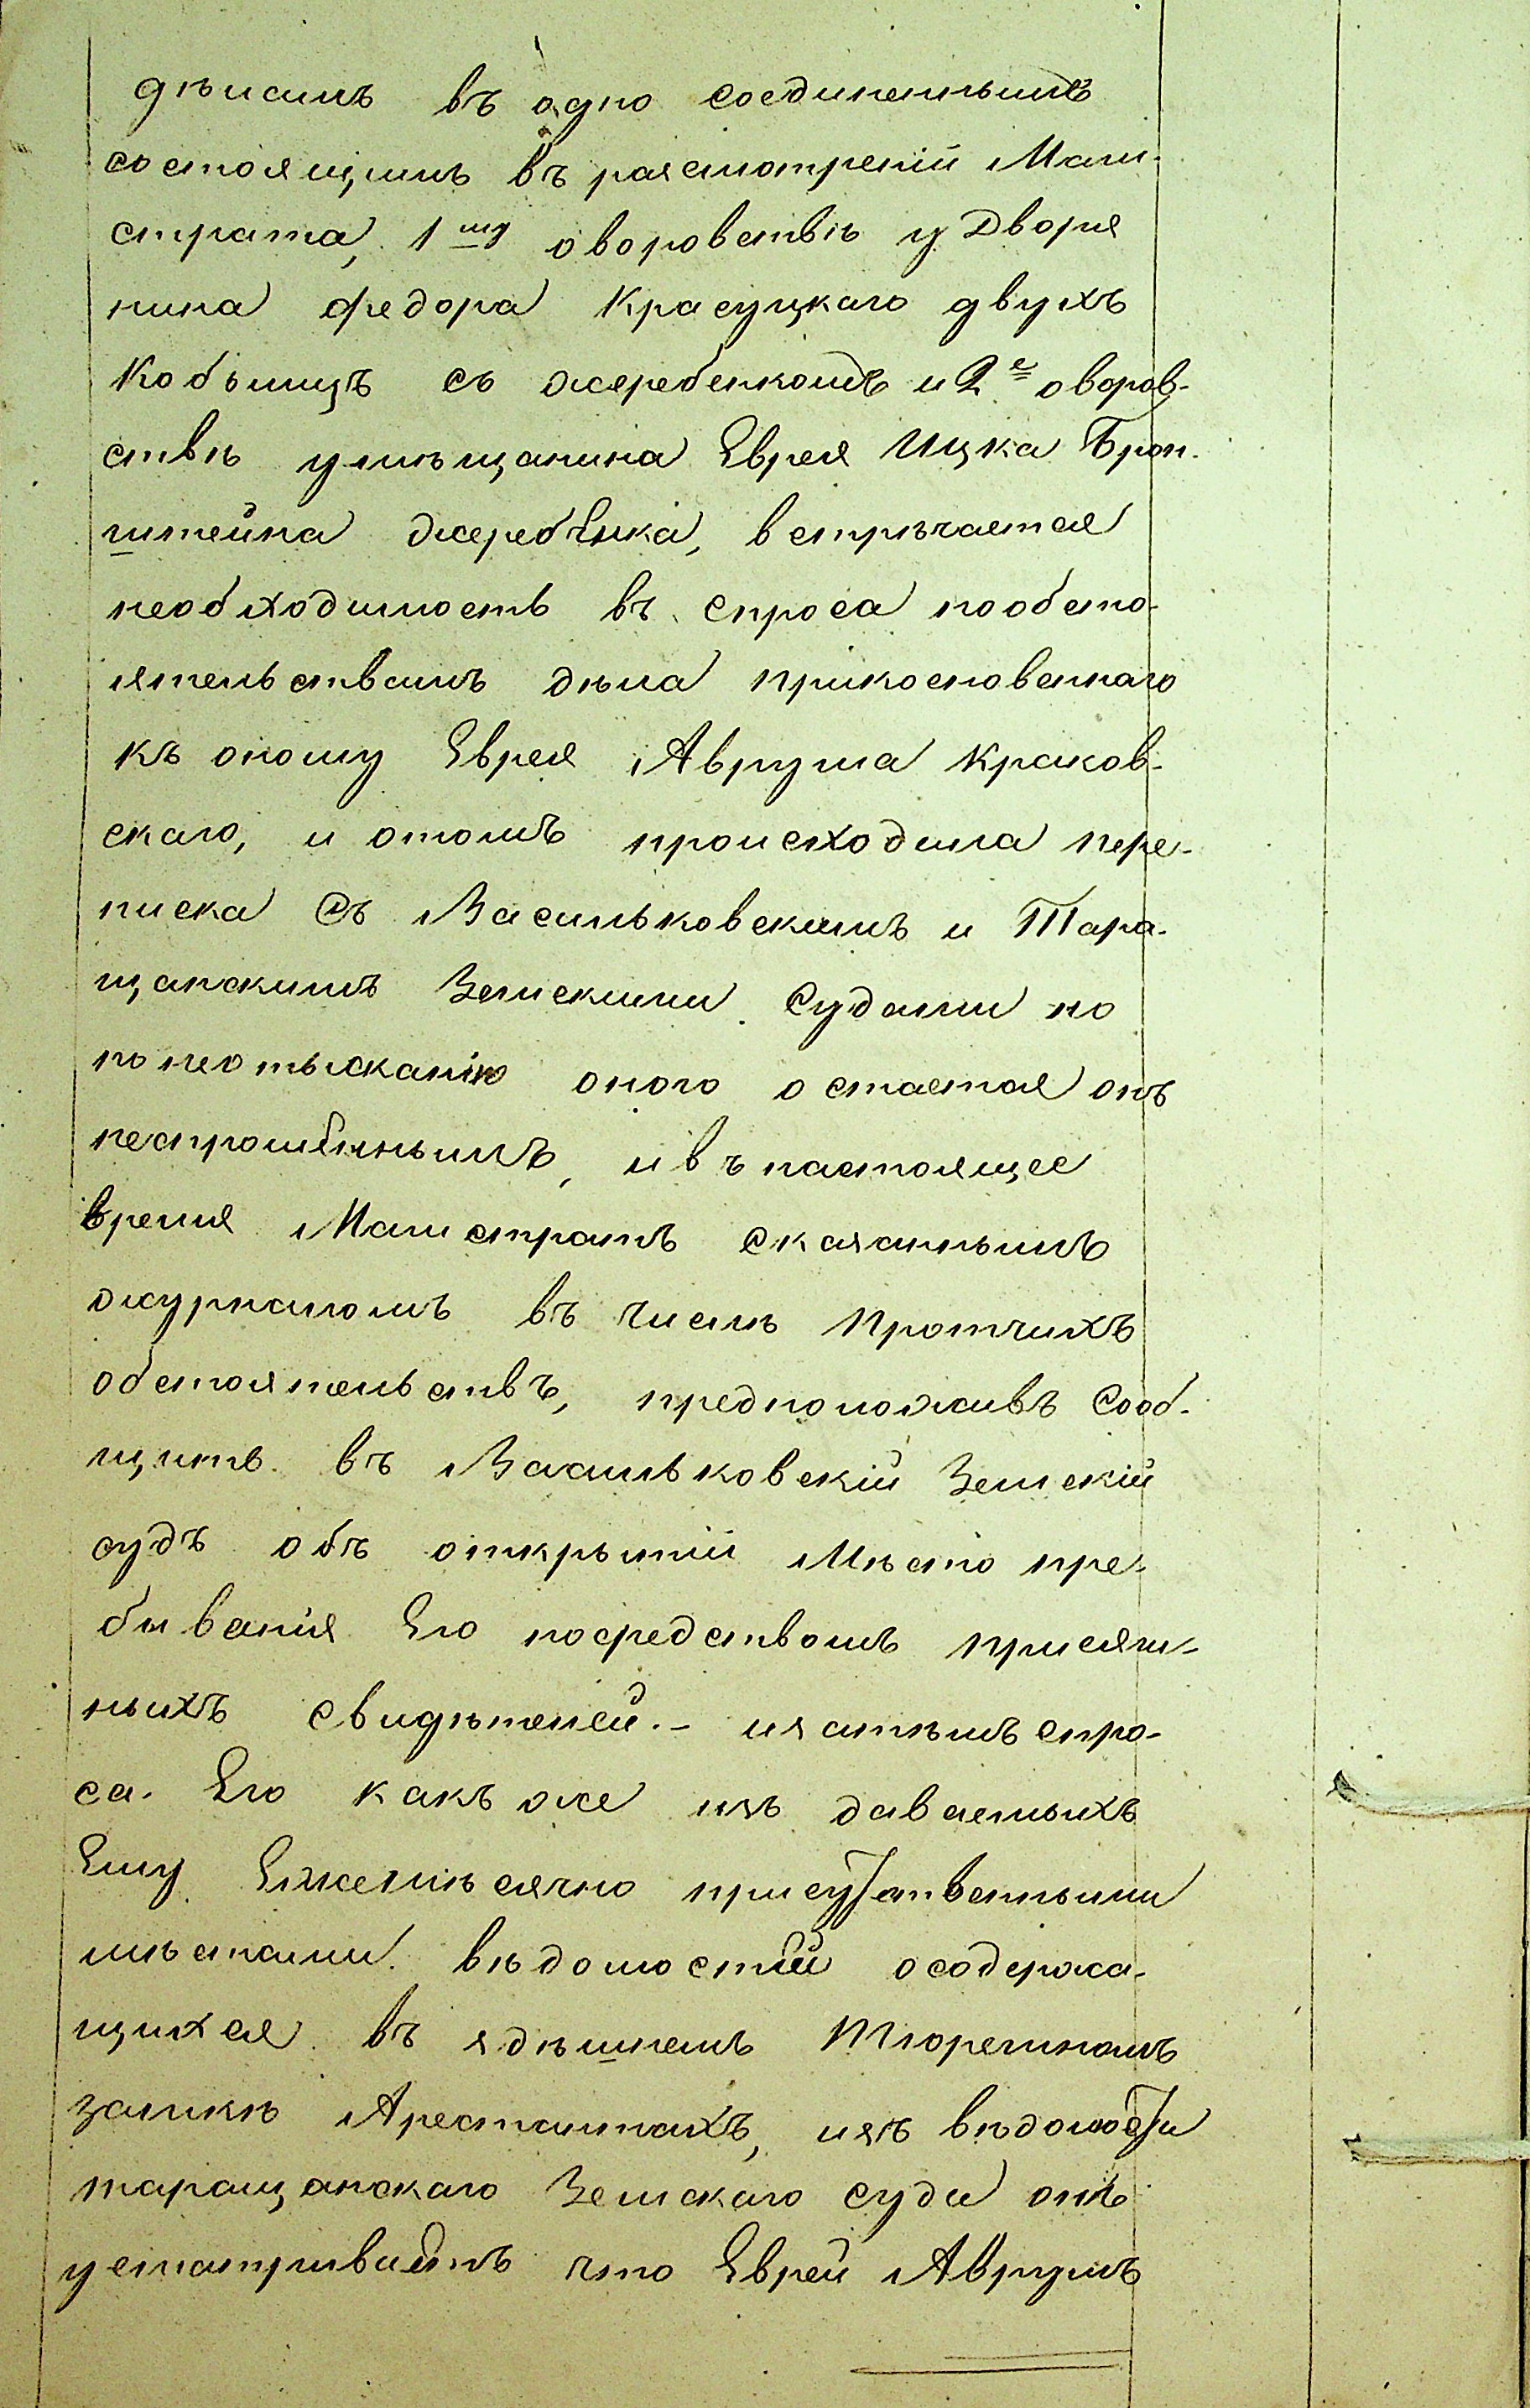 дѣламъ въ одно соединеннымъ
состоящимъ въ разсмотреніи Маги-
страта, 1му оворовствѣ у Дворя
нина Федора Красуцкаго двухъ
Кобылицъ съ жеребенкомъ и 2е оворов-
ствѣ умѣщанина Еврея Ицка Брон-
штейна жеребенка, встрѣчается
необходимость въ спроса пообсто-
ятельствамъ дѣла прикосновеннаго
къ оному Еврея Аврума Краков-
скаго, и отомъ происходила пере-
писка Съ Васильковскимъ и Тара-
щанскимъ Земскими Судами но
понеотысканію оного остается онъ
неспрошеннымъ, ивънастоящее
время Магистратъ сказаннымъ
журналомъ въ числѣ протчихъ
обстоятельствъ, предположивъ Сооб-
щить въ Васильковскій Земскій
судъ объ открытіи Мѣсто пре-
быванія Его посредствомъ присяж-
ныхъ свидѣтелей.- изатѣмъ спро-
са. Его какъ же изъ даваемыхъ
Ему Ежемѣсячно присутственными
мѣстами вѣдомостей осодержа-
щихся въ здѣшнемъ Тюремномъ
замкѣ Арестантахъ, изъ вѣдомости
таращанскаго Земскаго суда онъ
усматриваетъ что Еврей Аврумъ